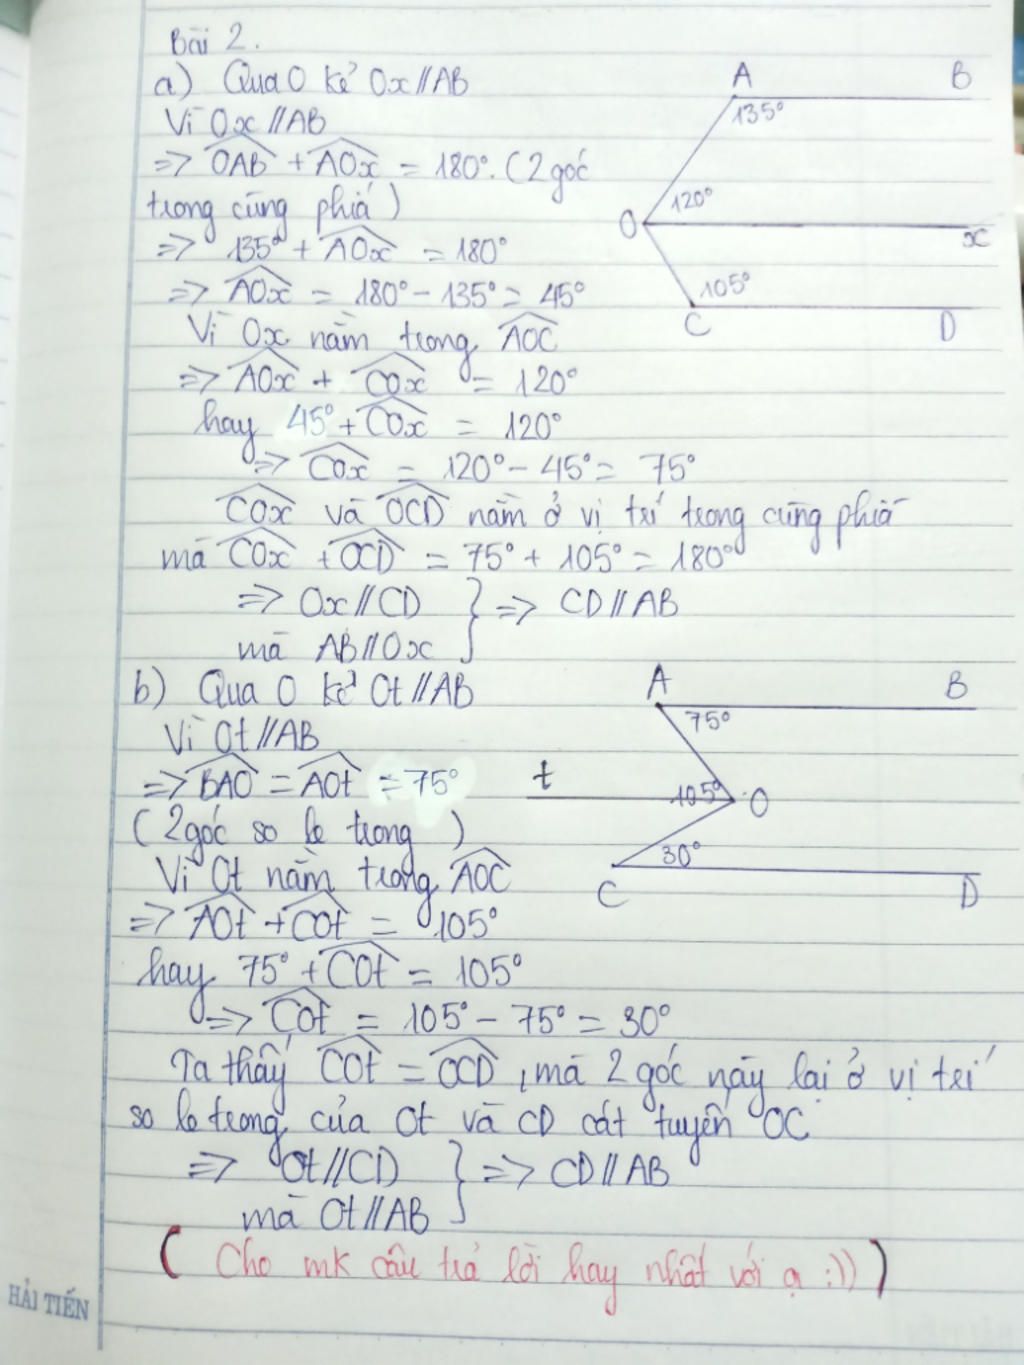 Bài 2.
a) Qua O kẻ Ox // AB
A B
Vì Ox // AB
135°
=> OAB + AOx = 180°. (2 góc
120°
trong cùng phía)
O x
=> 135° + AOx = 180°
=> AOx = 180° - 135° = 45°
105°
Vì Ox nằm trong AOC
C D
=> AOx + COx = 120°
hay 45° + COx = 120°
=> COx = 120° - 45° = 75°
COx và OCD nằm ở vị trí trong cùng phía
mà COx + OCD = 75° + 105° = 180°
=> Ox // CD } => CD // AB
mà AB // Ox
b) Qua O kẻ Ot // AB
A B
Vì Ot // AB
75°
=> BAO = AOt = 75°
t 105° O
(2 góc so le trong )
30°
Vì Ot nằm trong AOC
C D
=> AOt + COt = 105°
hay 75° + COt = 105°
=> COt = 105° - 75° = 30°
Ta thấy COt = OCD, mà 2 góc này lại ở vị trí
so le trong của Ot và CD cát tuyến OC
=> Ot // CD } => CD // AB
mà Ot // AB
( Cho mk câu trả lời hay nhất với ạ :)) )
HẢI TIẾN